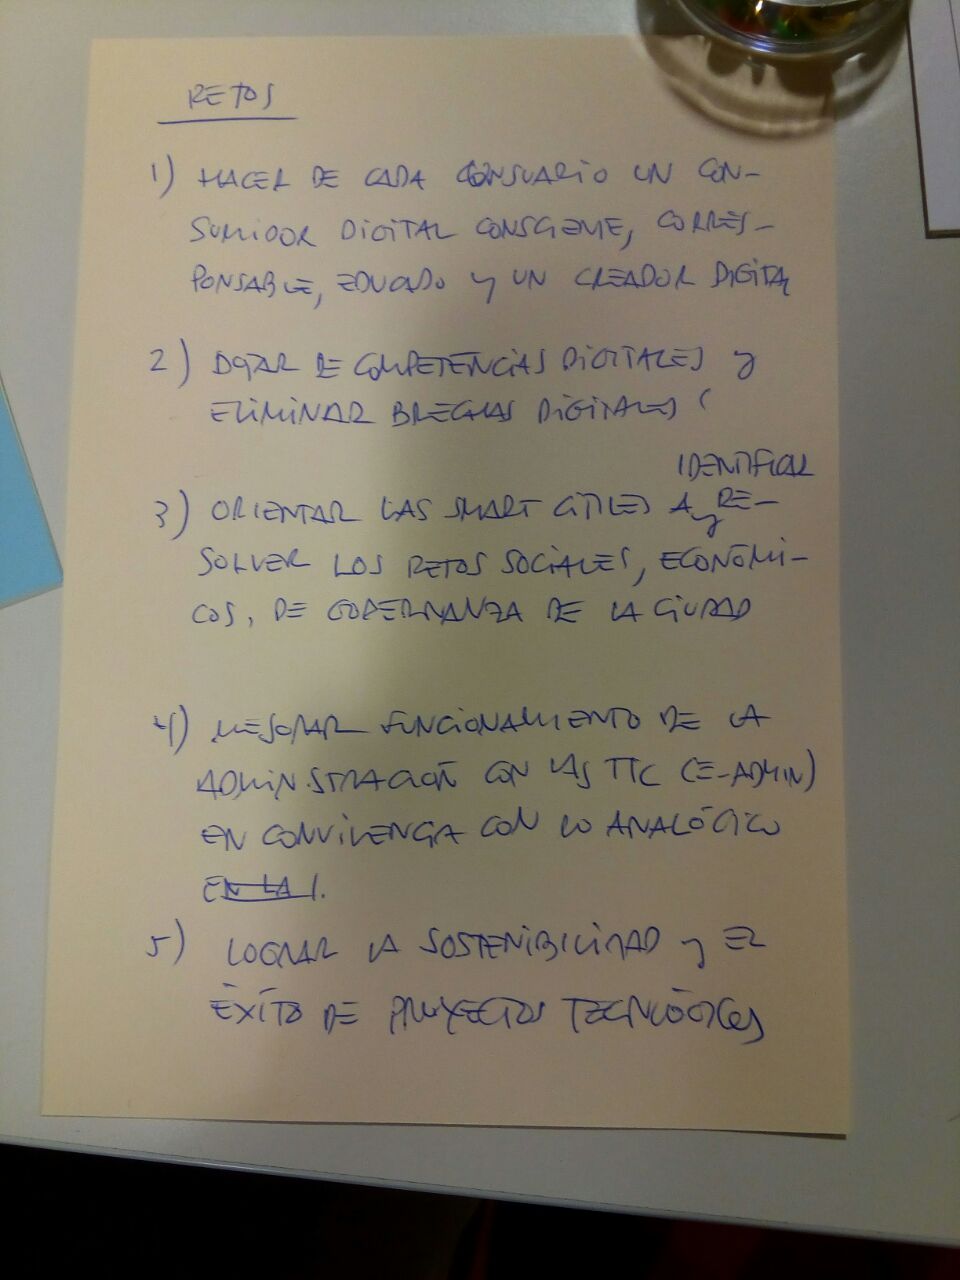 RETOS
1) HACER DE CADA CONSUARIO UN CON-
SUMIDOR DIGITAL CONSCIENTE, CORRES-
PONSABLE, EDUCADO Y UN CREADOR DIGITAL
2) DOTAR DE COMPETENCIAS DIGITALES Y
ELIMINAR BRECHAS DIGITALES (
IDENTIFICAR
3) ORIENTAR LAS SMART CITIES A y RE-
SOLVER LOS RETOS SOCIALES, ECONÓMI-
COS, DE GOBERNANZA DE LA CIUDAD
4) MEJORAR FUNCIONAMIENTO DE LA
ADMINISTRACIÓN CON LAS TIC (E-ADMIN)
EN CONVIVENCIA CON LO ANALÓGICO
EN LA
5) LOGRAR LA SOSTENIBILIDAD Y EL
ÉXITO DE PROYECTOS TECNOLÓGICOS